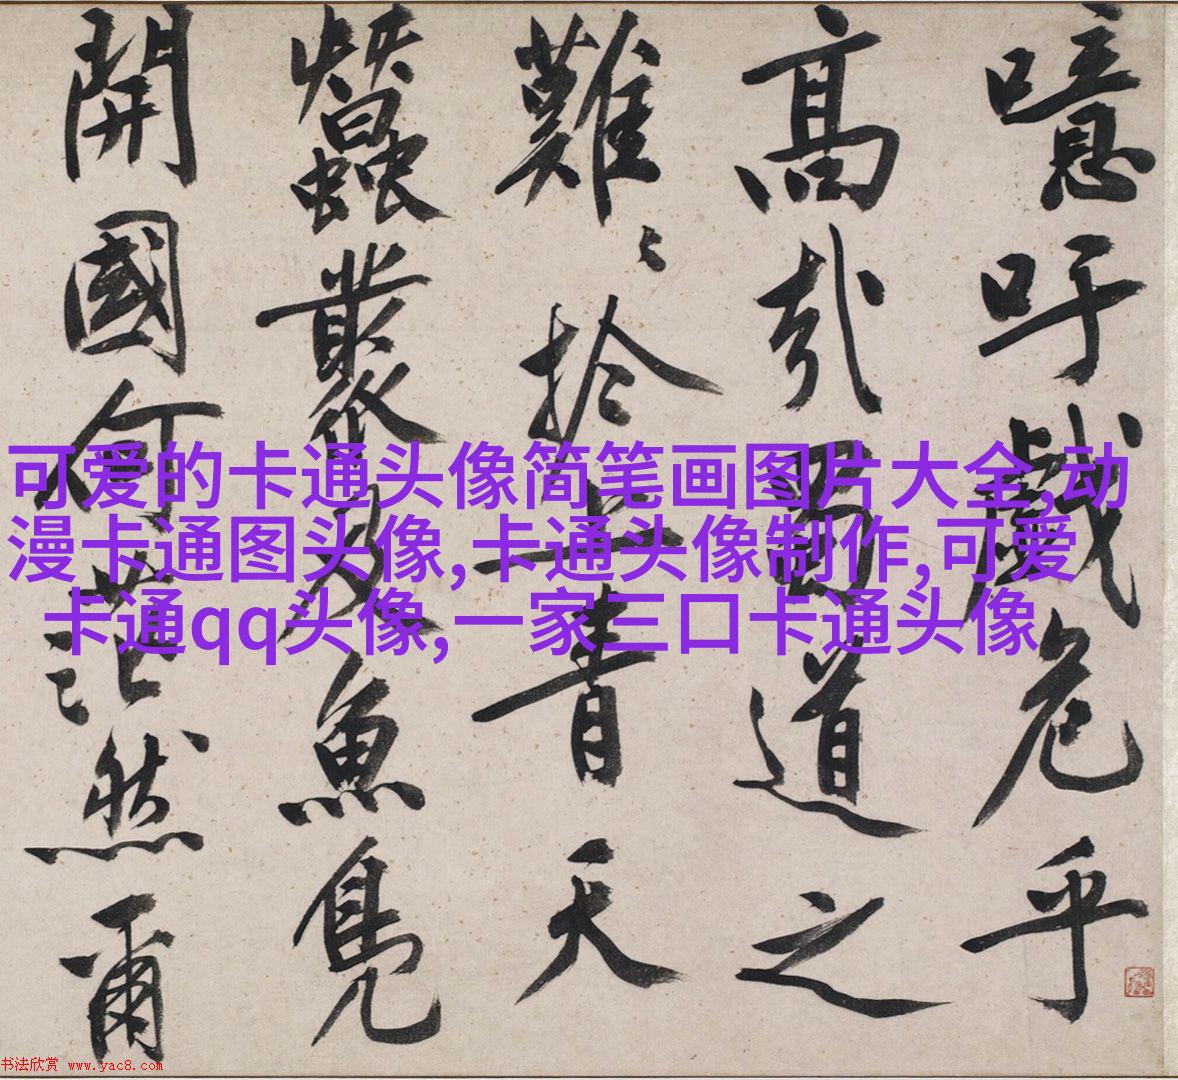 噫吁戲危乎
高哉蜀道之
難〻扵上青天
蠶叢及魚鳧
開國何茫然爾
可爱的卡通头像简笔画图片大全,动
漫卡通图头像,卡通头像制作,可爱
卡通qq头像,一家三口卡通头像
书法欣赏 www.yac8.com